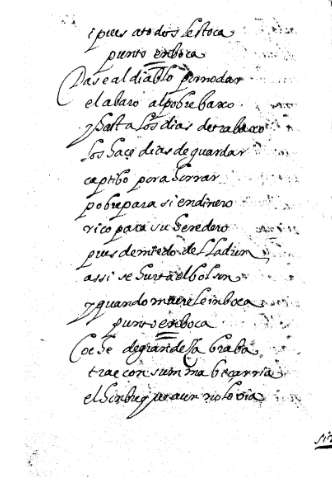 i pues a todos les toca
punto en boca
Dase al diablo por no dar
el abaro al pobre barco
y hasta los dias de trabaxo
los haçe dias de guardar
captibo por ahorrar
pobre para si en dinero
rico para su heredero
pues de miedo del ladron
assi se hurta el bolson
y quando muere le inboca
punto en boca
Coche de grandeza braba
trae con suma biçarria
el hombre que aun no lo via